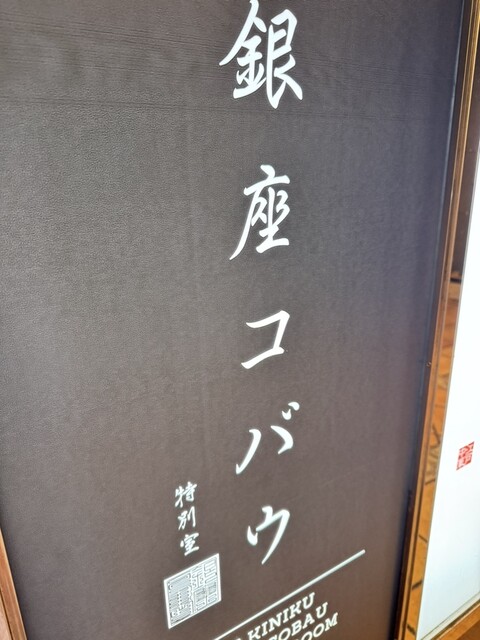 銀座コバウ
特別室
KINIKU
OBAU
OOM